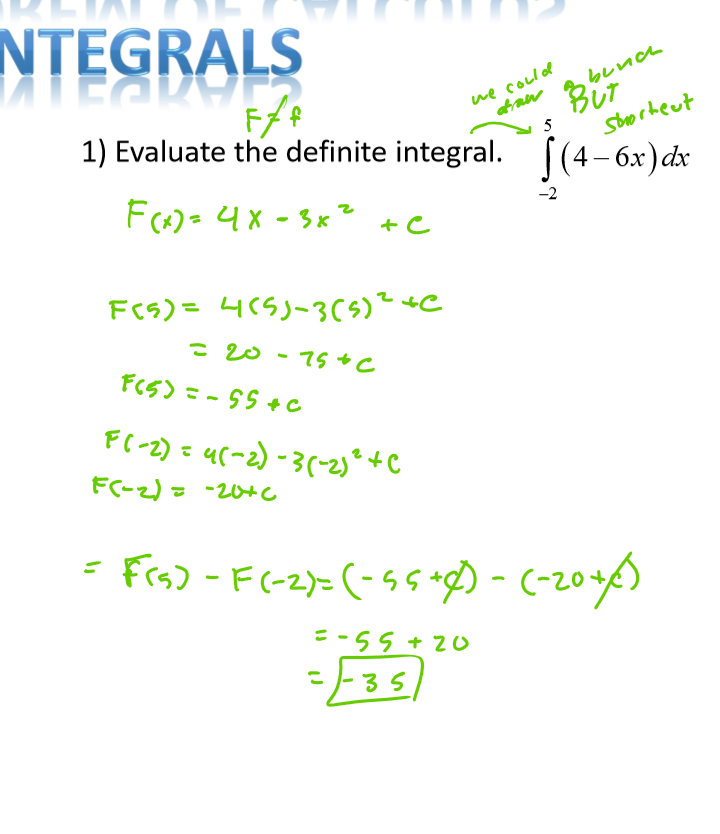 NTEGRALS
we could draw a bunch
BUT
shortcut
F ≠ f
1) Evaluate the definite integral. ∫_{-2}^{5} (4 − 6x) dx
F(x) = 4x - 3x² + C
F(5) = 4(5) - 3(5)² + C
= 20 - 75 + C
F(5) = -55 + C
F(-2) = 4(-2) - 3(-2)² + C
F(-2) = -20 + C
= F(5) - F(-2) = (-55 + C) - (-20 + C)
= -55 + 20
= -35